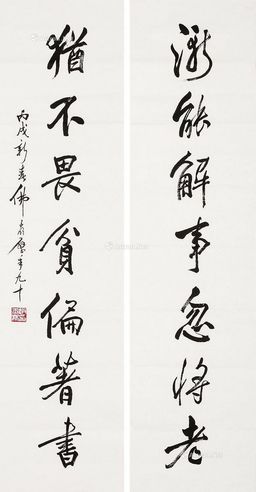 渐能解事忽将老
犹不畏贫偏著书
丙戌新春佛
年九十